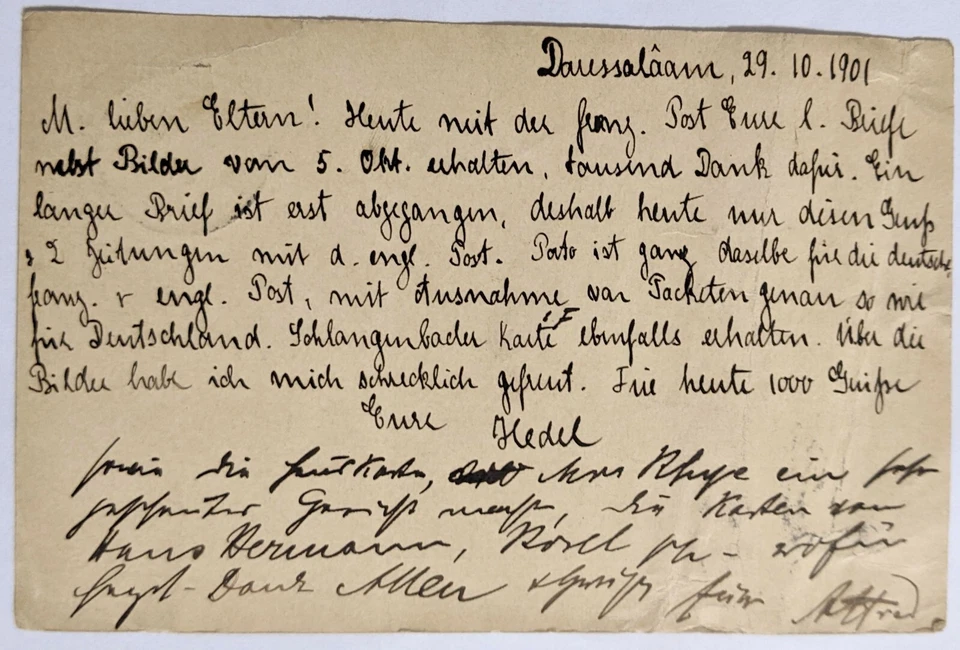 Daressalâam, 29. 10. 1901
M. lieben Eltern! Heute mit der franz. Post Eure l. Briefe
nebst Bilder vom 5. Okt. erhalten, tausend Dank dafür. Ein
langer Brief ist erst abgegangen, deshalb heute nur diesen Gruß
2 Zeitungen mit d. engl. Post. Porto ist ganz dasselbe für die deutsche
franz. & engl. Post, mit Ausnahme von Packeten genau so wie
für Deutschland. Schlangenbader Karte ebenfalls erhalten. Über die
Bilder habe ich mich schrecklich gefreut. Für heute 1000 Grüße
Eure Hedel
sowie die ein sehr
Gesicht macht, die Karten von
Hans Hermann, Rösel wofür
Dank Allen Alfred.